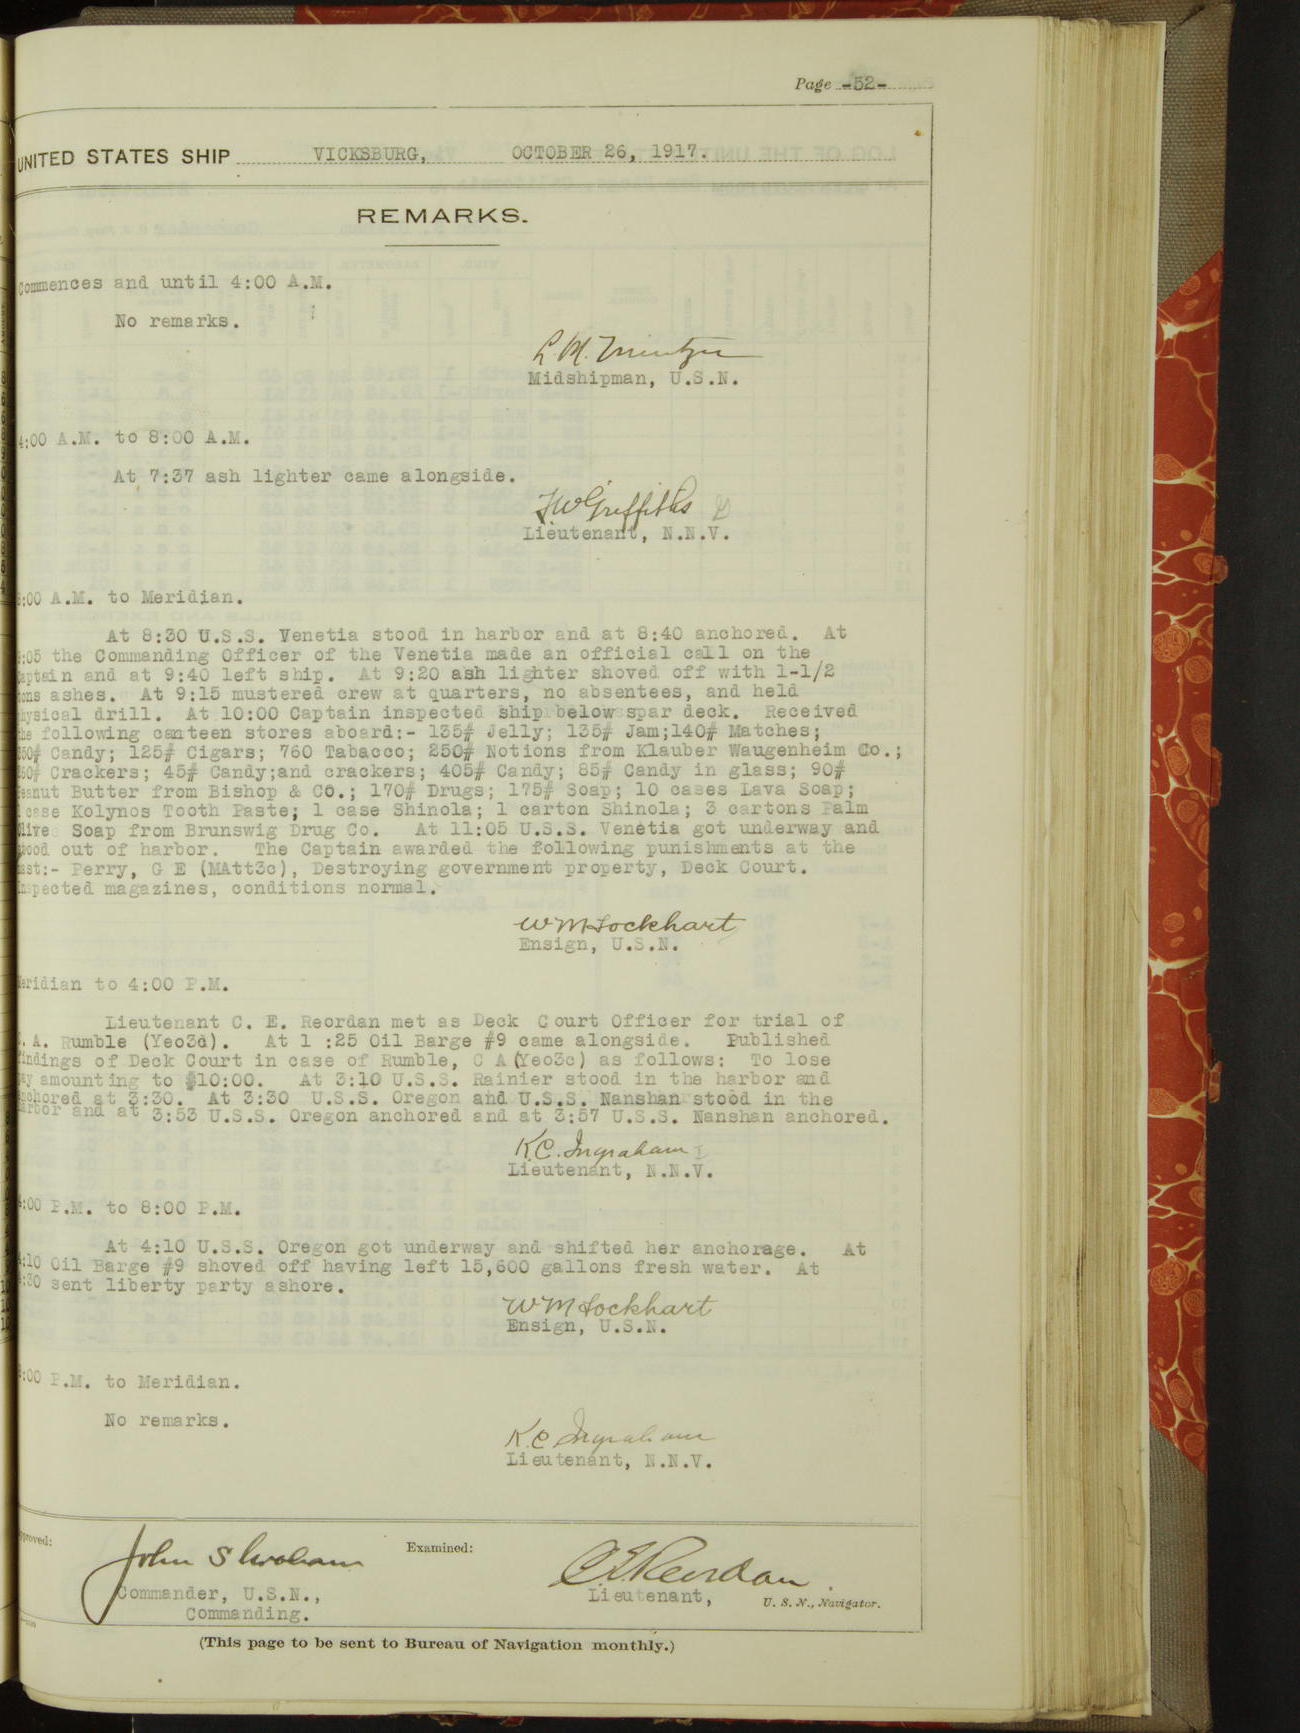 Page -52-
UNITED STATES SHIP VICKSBURG, OCTOBER 26, 1917.
REMARKS.
Commences and until 4:00 A.M.
No remarks.
Midshipman, U.S.N.
4:00 A.M. to 8:00 A.M.
At 7:37 ash lighter came alongside.
F.W Griffiths
Lieutenant, N.N.V.
8:00 A.M. to Meridian.
At 8:30 U.S.S. Venetia stood in harbor and at 8:40 anchored. At
:05 the Commanding Officer of the Venetia made an official call on the
Captain and at 9:40 left ship. At 9:20 ash lighter shoved off with 1-1/2
tons ashes. At 9:15 mustered crew at quarters, no absentees, and held
physical drill. At 10:00 Captain inspected ship below spar deck. Received
the following canteen stores aboard:- 135# Jelly; 135# Jam;140# Matches;
50# Candy; 125# Cigars; 760 Tabacco; 250# Notions from Klauber Waugenheim Co.;
50# Crackers; 45# Candy;and crackers; 405# Candy; 85# Candy in glass; 90#
Peanut Butter from Bishop & Co.; 170# Drugs; 175# Soap; 10 cases Lava Soap;
1 case Kolynos Tooth Paste; 1 case Shinola; 1 carton Shinola; 3 cartons Palm
Olive Soap from Brunswig Drug Co. At 11:05 U.S.S. Venetia got underway and
stood out of harbor. The Captain awarded the following punishments at the
mast:- Perry, G E (MAtt3c), Destroying government property, Deck Court.
Inspected magazines, conditions normal.
W M Lockhart
Ensign, U.S.N.
Meridian to 4:00 P.M.
Lieutenant C. E. Reordan met as Deck Court Officer for trial of
C. A. Rumble (Yeo3c). At 1 :25 Oil Barge #9 came alongside. Published
findings of Deck Court in case of Rumble, C A (Yeo3c) as follows: To lose
pay amounting to $10:00. At 3:10 U.S.S. Rainier stood in the harbor and
anchored at 3:30. At 3:30 U.S.S. Oregon and U.S.S. Nanshan stood in the
harbor and at 3:53 U.S.S. Oregon anchored and at 3:57 U.S.S. Nanshan anchored.
K.C. Ingraham
Lieutenant, N.N.V.
4:00 P.M. to 8:00 P.M.
At 4:10 U.S.S. Oregon got underway and shifted her anchorage. At
:10 Oil Barge #9 shoved off having left 15,600 gallons fresh water. At
:30 sent liberty party ashore.
W M Lockhart
Ensign, U.S.N.
8:00 P.M. to Meridian.
No remarks.
K.C Ingraham
Lieutenant, N.N.V.
Approved:
Examined:
Commander, U.S.N.,
Commanding.
C E Reordan
Lieutenant, U. S. N., Navigator.
(This page to be sent to Bureau of Navigation monthly.)